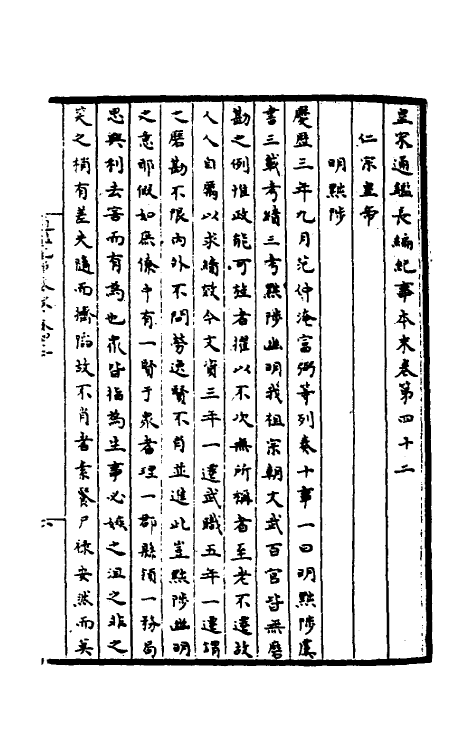 皇宋通鑑長編紀事本末卷第四十二
仁宗皇帝
明黜陟
慶歷三年九月范仲淹富弼等列奏十事一曰明黜陟虞
書三載考績三考黜陟幽明我祖宗朝文武百官皆無磨
勘之例惟政能可旌者擢以不次無所稱者至老不遷故
人人自厲以求績效今文資三年一遷武職五年一遷謂
之磨勘不限內外不問勞逸賢不肖並進此豈黜陟幽明
之意耶假如庶僚中有一賢于衆者理一郡縣領一務局
思興利去害而有為也衆皆指為生事必嫉之沮之非之
笑之稍有差失隨而擠陷故不肖者素餐尸祿安然而莫